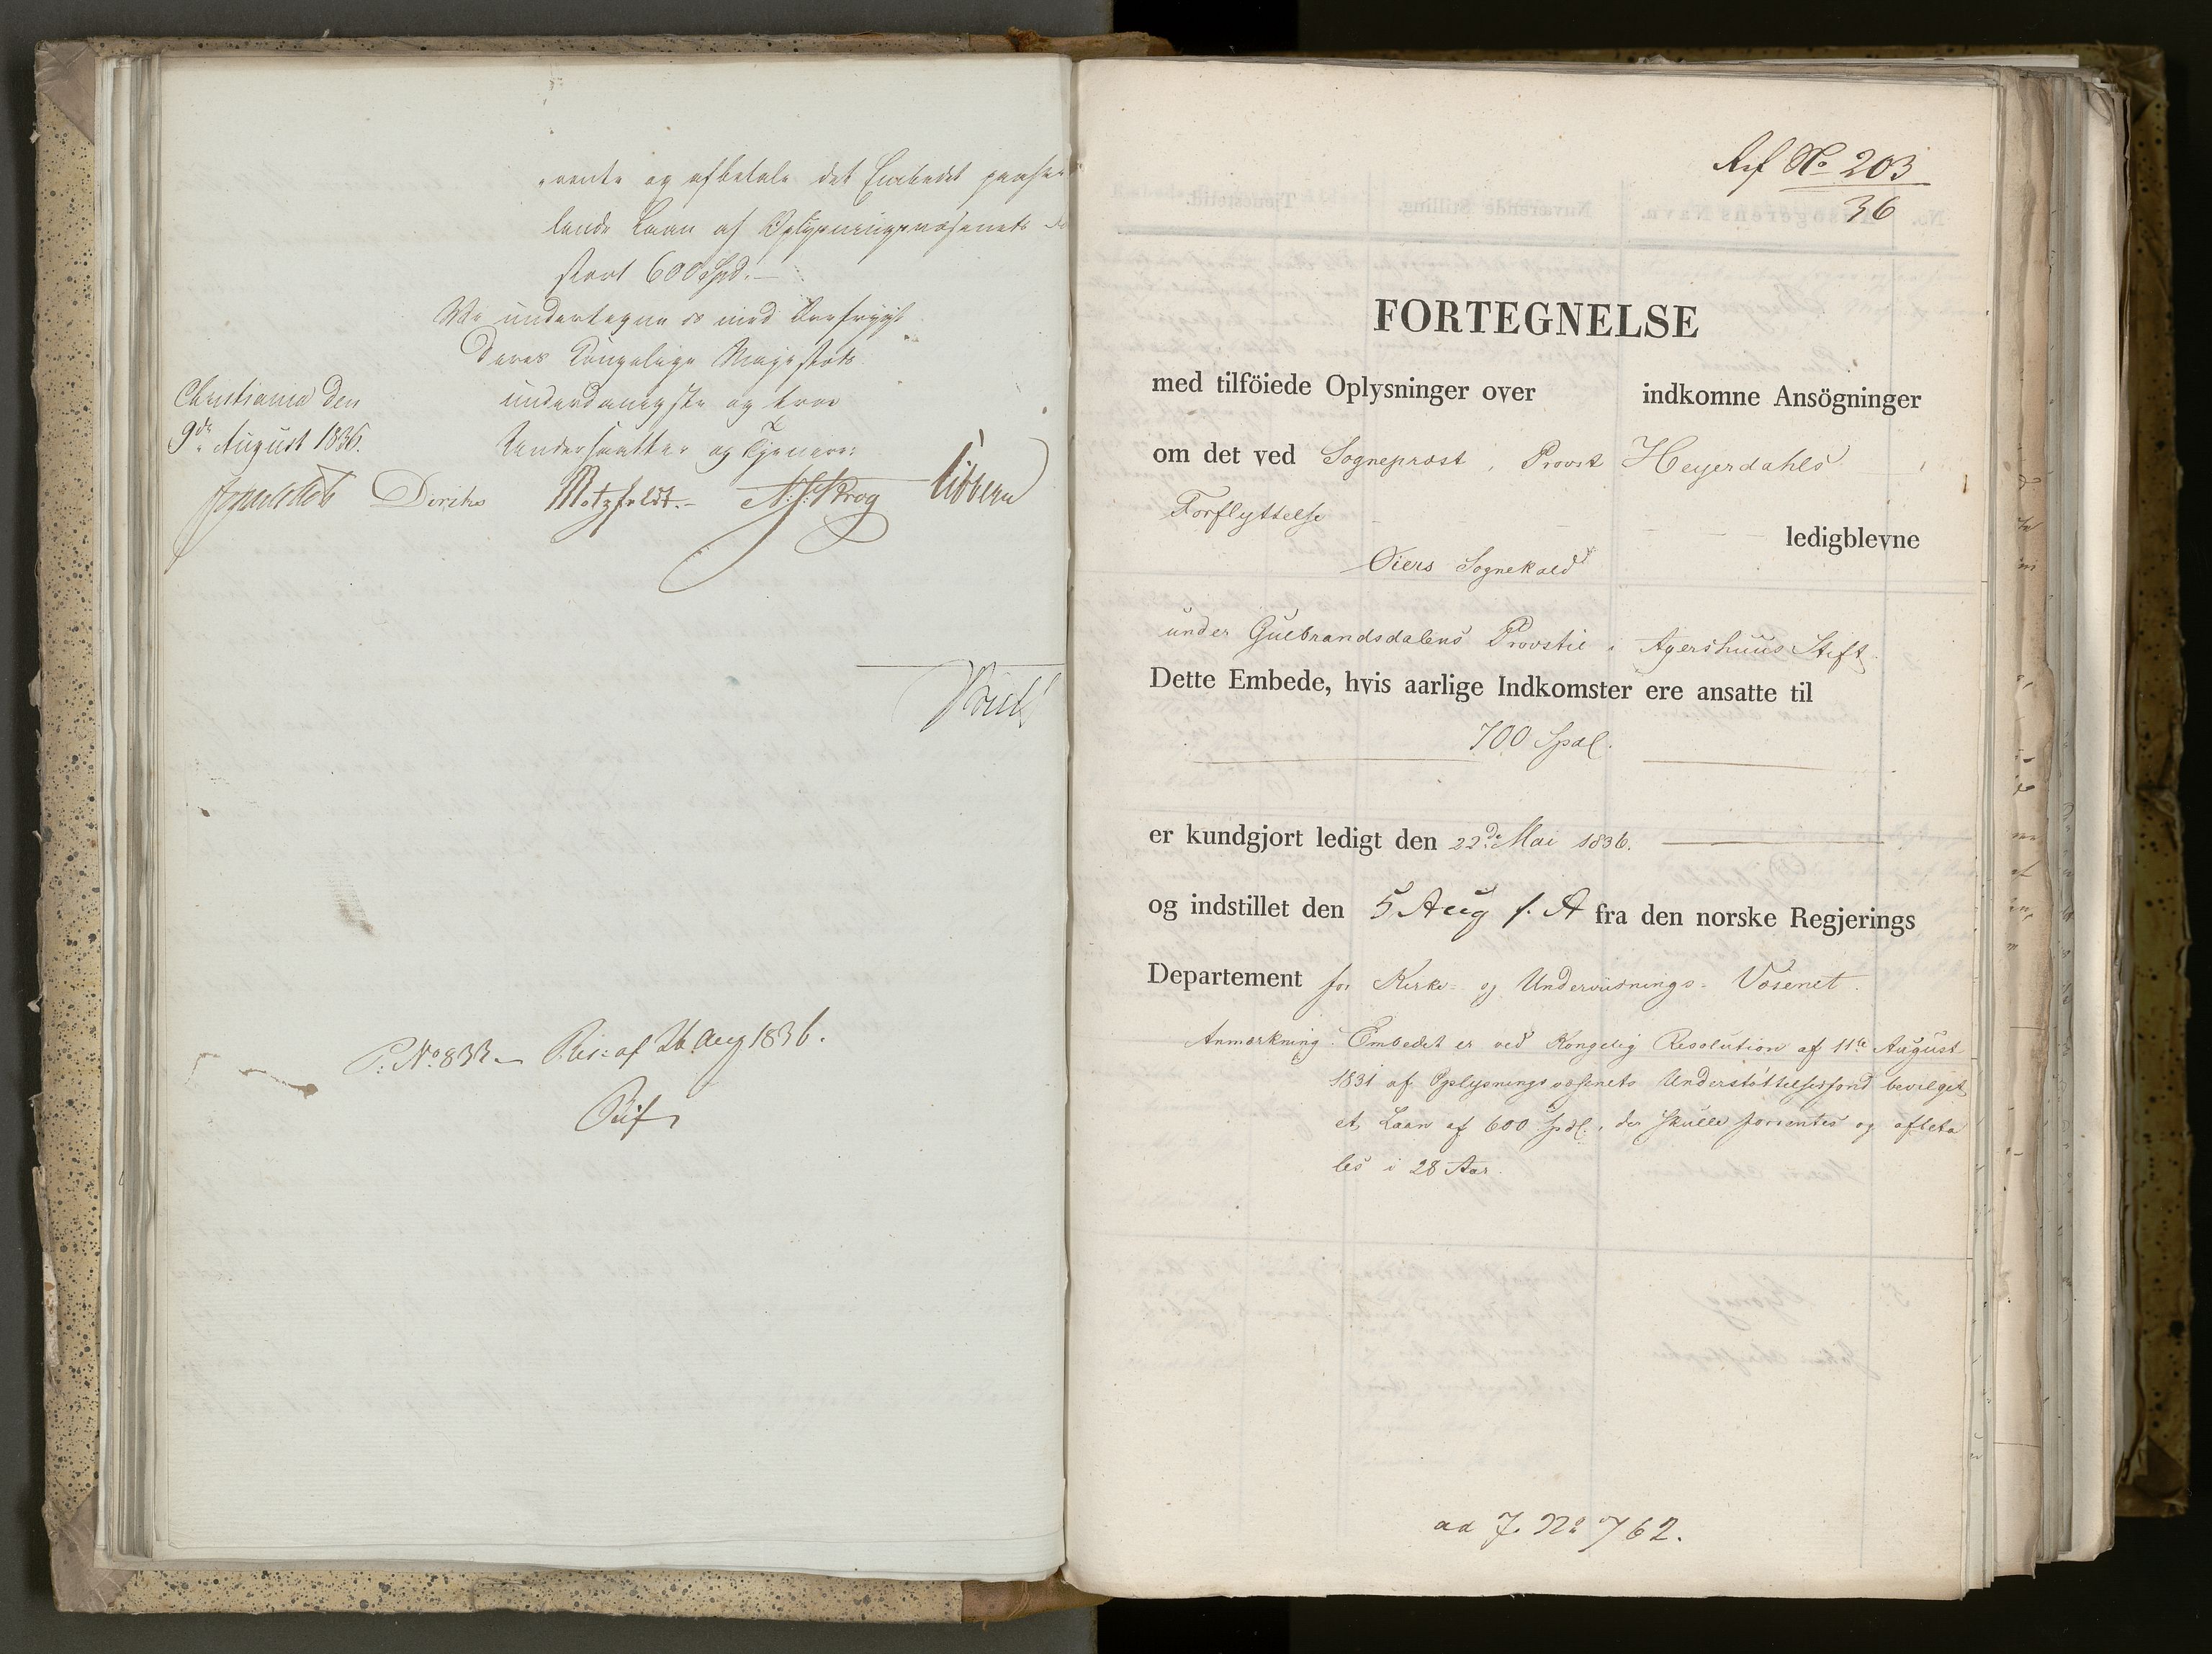 rente og afbetale det Embedet paahvi
lende Laan af Oplysningsvæsenets
stort 600 Spd. —
Vi undertegne os med Ærefrygt
Deres Kongelige Majestæts
underdanigste og troe
Undersaatter og Tjenere:
Christiania den
9de August 1836.
Diriks Motzfeldt. Krog Vibbern
P: No. 833. — Res: af 26 Aug 1836.
Ref No 203
36
FORTEGNELSE
med tilföiede Oplysninger over indkomne Ansögninger
om det ved Sognepræst, Provst Heyerdahls
Forflyttelse
ledigblevne
Öiers Sognekald
under Gulbrandsdalens Provstie i Agershuus Stift.
Dette Embede, hvis aarlige Indkomster ere ansatte til
700 Spdl.
er kundgjort ledigt den 22de Mai 1836.
og indstillet den 5 Aug s. A fra den norske Regjerings
Departement for Kirke- og Underviisnings-Væsenet.
Anmærkning. Embedet er ved Kongelig Resolution af 11te August
1831 af Oplysningsvæsenets Understöttelsesfond bevilget
et Laan af 600 Spdl., der skulle forrentes og afbeta
les i 28 Aar.
ad J. No 762.